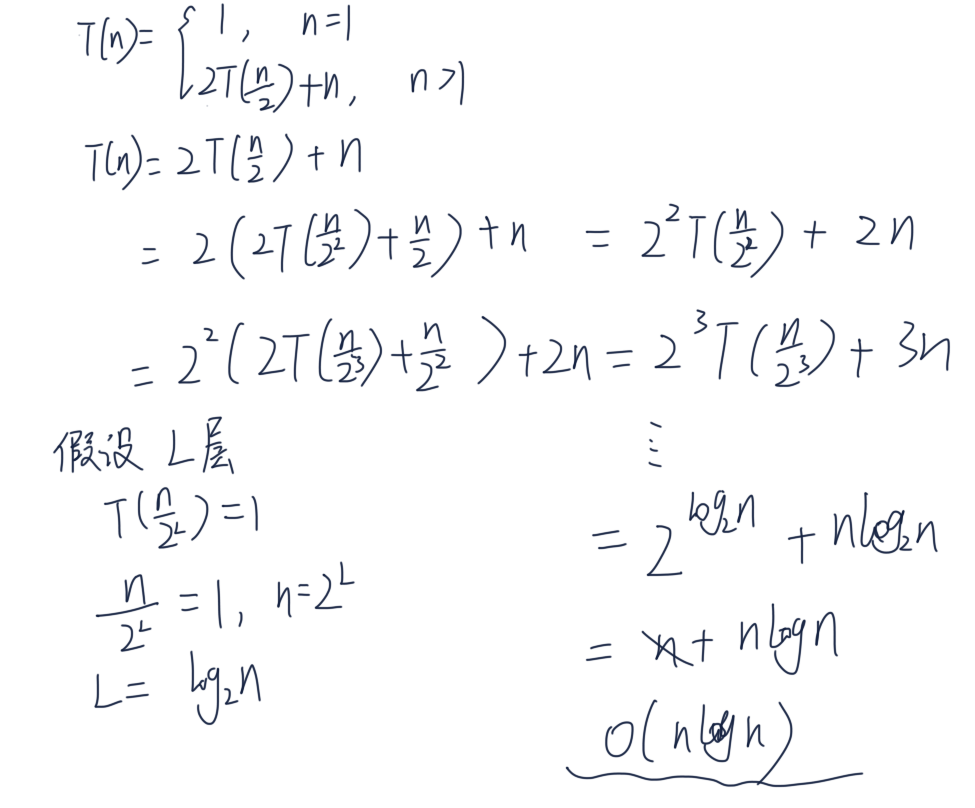 T(n)= { 1, n=1
2T(n/2)+n, n>1
T(n)= 2T(n/2)+n
= 2(2T(n/2²)+n/2)+n = 2²T(n/2²)+2n
= 2²(2T(n/2³)+n/2²)+2n = 2³T(n/2³)+3n
⋮
假设 L层
T(n/2^L)=1
n/2^L=1, n=2^L
L= log₂n
= 2^(log₂n) + nlog₂n
= n+ nlogn
O(nlogn)